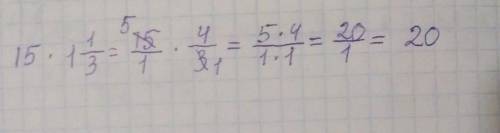 15 · 1 1/3 = 5 15/1 · 4/3 1 = 5·4/1·1 = 20/1 = 20